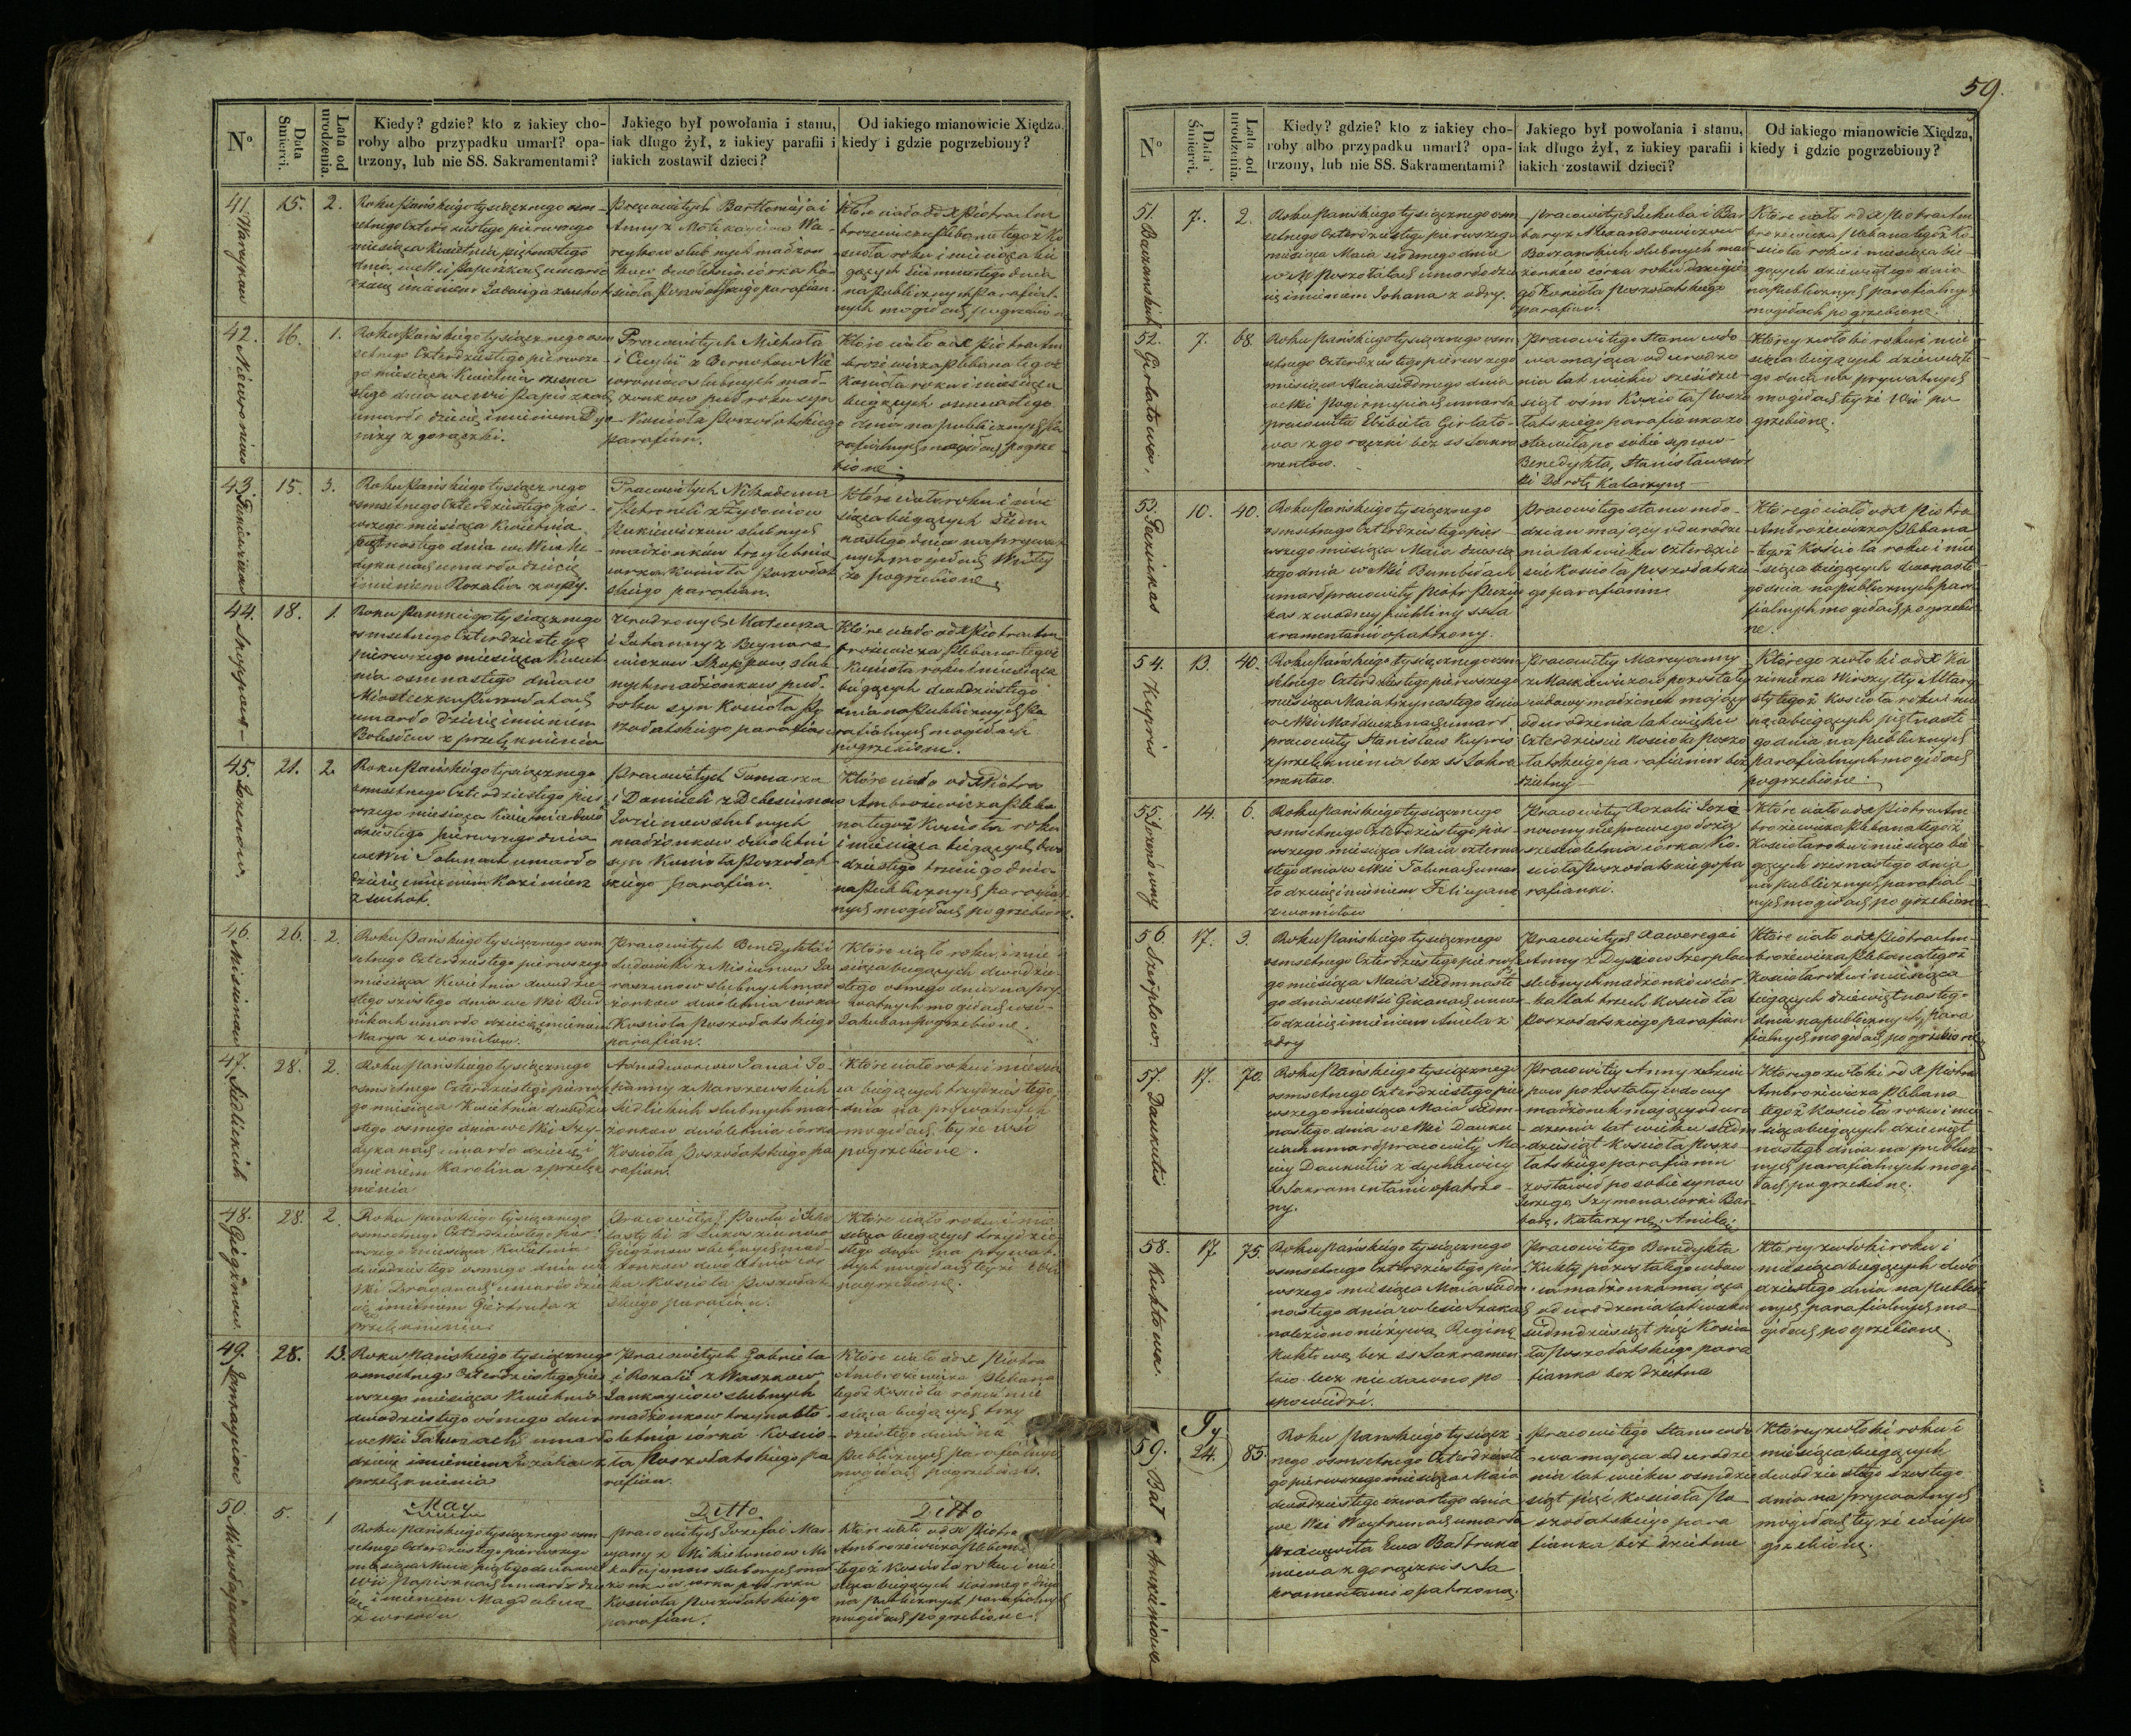 59.
Nº
Data Smierci.
Lata od urodzenia.
Kiedy? gdzie? kto z iakiey cho-
roby albo przypadku umarł? opa-
trzony, lub nie SS. Sakramentami?
Jakiego był powołania i stanu,
iak długo żył, z iakiey parafii i
iakich zostawił dzieci?
Od iakiego mianowicie Xiędza,
kiedy i gdzie pogrzebiony?
41.
15.
2.
Roku Pańskiego tysiącznego osm-
setnego Czterdziestego pierwszego
miesiąca Kwietnia piętnastego
dnia we Wsi Papiszkach umarło
Pracowitych Bartłomieja i
Które ciało od X Piotra Am
brożewicza Plebana tegoż Ko
ścioła roku i miesiąca bie
żących siedmnastego dnia
na Publicznych Parafial-
nych mogiłach pogrzebione
42.
16.
1.
Roku Pańskiego tysiącznego osm
setnego Czterdziestego pierwsze-
go miesiąca Kwietnia szesna
stego dnia we Wsi Papiszkach
umarło dziecię imieniem Dyo-
nizy z gorączki.
Pracowitych Michała
żonkow puł roku syn
Kościoła Poszołatskiego
parafian.
Które ciało od X Piotra Am
brożewicza Plebana tegoż
Kościoła roku i miesiąca
bieżących osmnastego
dnia na publicznych Pa
rafialnych mogiłach pogrze
bione.
43.
15.
3.
Roku Pańskiego tysiącznego
osmsetnego Czterdziestego pier-
wszego miesiąca Kwietnia
piętnastego dnia we Wsi
umarło dziecię
imieniem Rozalia z ospy.
małżonkow trzyletnia
corka Kościoła Poszołat
skiego parafian.
Które ciało roku i mie
siąca bieżących siedm
nastego dnia na prywat
nych mogiłach Wsi ty
że pogrzebione
44. Skoppow
18.
1.
Roku Pańskiego tysiącznego
osmsetnego Czterdziestego
pierwszego miesiąca Kwiet
nia osmnastego dnia w
Miasteczku Poszołatach
umarło dziecię imieniem
Bolesław z przelęknienia
Urodzonych Mateusza
nych małżonkow puł
roku syn Kościoła Po
szołatskiego parafian
Które ciało od X Piotra Am
brożewicza Plebana tegoż
Kościoła roku i miesiąca
bieżących dwudziestego
dnia na Publicznych Pa
rafialnych mogiłach
pogrzebione.
45.
21.
2.
Roku Pańskiego tysiącznego
osmsetnego Czterdziestego pier
wszego miesiąca Kwietnia dwu
dziestego pierwszego dnia
we Wsi Talunach umarło
dziecię imieniem Kazimierz
z suchot.
Pracowitych Tomasza
małżonkow dwóletni
syn Kościoła Poszołat
skiego parafian.
Które ciało od X Piotra
Ambrożewicza Pleba
na tegoż Kościoła roku
i miesiąca bieżących dwu
dziestego trzeciego dnia
na Publicznych parafial
nych mogiłach pogrzebione.
46. Misiunow
26.
2.
Roku Pańskiego tysiącznego osm
setnego Czterdziestego pierwszego
miesiąca Kwietnia dwudzie
stego szóstego dnia we Wsi Bud
nikach umarło dziecię imieniem
Marya z womitow.
Pracowitych Benedykta i
żonkow dwóletnia córka
Kościoła Poszołatskiego
parafian.
Które ciało roku i mie
siąca bieżących dwudzie
stego osmego dnia na pry
watnych mogiłach wsi
pogrzebione.
47. Siedlickich
28.
2.
Roku Pańskiego tysiącznego
osmsetnego Czterdziestego pierwsze
go miesiąca Kwietnia dwudzie
stego osmego dnia we Wsi Szy-
dykanach umarło dziecię i
mieniem Karolina z przelęk
nienia
Jana i Jo-
hanny z Marszewskich
Siedlickich slubnych mał
żonkow dwóletnia córka
Kościoła Poszołatskiego pa
rafian.
Które ciało roku i miesią
ca bieżących trzydziestego
dnia na prywatnych
mogiłach tyże wsi
pogrzebione.
48.
28.
2.
Roku pańskiego tysiącznego
osmsetnego Czterdziestego pier
wszego miesiąca Kwietnia
dwudziestego osmego dnia we
Wsi Draganach umarło dzie
cię imieniem Giertruda z
przelęknienia.
żonkow dwóletnia cor
ka Kościoła Poszołat
skiego parafian.
Które ciało roku i mie
siąca bieżących trzydzie
stego dnia na prywat
nych mogiłach teyże wsi
pogrzebione.
49.
28.
13.
Roku Pańskiego tysiącznego
osmsetnego Czterdziestego pier
wszego miesiąca Kwietnia
dwudziestego ósmego dnia
we Wsi Talunach umarło
dziecię imieniem Rozalia z
przelęknienia
Pracowitych Gabriela
małżonkow trzynasto
letnia córka Kościo
ła Poszołatskiego pa
rafian.
Które ciało od X Piotra
Ambrożewicza Plebana
tegoż Kościoła roku i mie
siąca bieżących trzy
dziestego dnia na
Publicznych parafialnych
mogiłach pogrzebione.
May
Ditto
Ditto
50.
5.
1
Roku pańskiego tysiącznego osm
setnego Czterdziestego pierwszego
miesiąca Maia piątego dnia we
Wsi Papiszkach umarło dzie
cię imieniem Magdalena
z wrzodu
pracowitych Jozefa i Mar
żonkow corka puł roku
Kościoła Poszołatskiego
parafian.
Które ciało od X Piotra
Ambrożewicza Plebana
tegoż Kościoła roku i mie
siąca bieżących siódmego dnia
na publicznych parafialnych
mogiłach pogrzebione.
Nº
Data Śmierci.
Lata od urodzenia.
Kiedy? gdzie? kto z iakiey cho-
roby albo przypadku umarł? opa-
trzony, lub nie SS. Sakramentami?
Jakiego był powołania i stanu,
iak długo żył, z iakiey parafii i
iakich zostawił dzieci?
Od iakiego mianowicie Xiędza,
kiedy i gdzie pogrzebiony?
51. Barzanskich
7.
2.
Roku Pańskiego tysiącznego osm
setnego Czterdziestego pierwszego
miesiąca Maia siódmego dnia
w M Poszołatach umarło dzie
cię imieniem Johana z odry.
pracowitych Jakuba i Bar
bary z Alexandrowiczow
Barzanskich slubnych mał
żonków córka roku drugie
go Kościoła Poszołatskiego
parafian.
Które ciało od X Piotra Am
brożewicza Plebana tegoż Ko
ścioła roku i miesiąca bie
żących dziewiątego dnia
na publicznych parafialnych
mogiłach pogrzebione.
52. Girłatowa.
7.
68
Roku Pańskiego tysiącznego osm
setnego Czterdziestego pierwszego
miesiąca Maia siódmego dnia
umarła
pracowita Elżbieta Girłato-
wa z gorączki bez SS Sakra
mentow.
Pracowitego Stanu wdo
wa mająca od urodze
nia lat wieku sześćdzie
siąt ośm Kościoła Poszo
łatskiego parafianka zo
stawiła po sobie synow
Benedykta, Stanisława cor
ki Dorotę Katarzynę
Którey zwłoki roku i mie
siąca bieżących dziewiąte
go dnia na prywatnych
mogiłach tyże Wsi po
grzebione.
53. Puzinkas
10.
40.
Roku Pańskiego tysiącznego
osmsetnego Czterdziestego pier
wszego miesiąca Maia dziesią
tego dnia we Wsi Bumbułach
umarł pracowity Piotr Puzin
kas z wodney puchliny SS Sa
kramentami opatrzony.
Pracowitego stanu mło-
dzian mający od urodze
nia lat wieku czterdzie
ści Kościoła Poszołatskie
go parafianin
Którego ciało od X Piotra
Ambrożewicza Plebana
tegoż Kościoła roku i mie
siąca bieżących dwunaste
go dnia na publicznych para
fialnych mogiłach pogrzebio
ne.
54. Kupris
13.
40.
Roku Pańskiego tysiącznego osm
setnego Czterdziestego pierwszego
miesiąca Maia trzynastego dnia
umarł
pracowity Stanisław Kupris
z przelęknienia bez SS Sakra
mentow.
Pracowitey Maryanny
z Maskiewiczow pozostały
wdowy małżonek mający
od urodzenia lat wieku
Czterdzieści Kościoła Poszo
łatskiego parafianin bez
dzietny
Którego zwłoki od X Ka
zimierza Wirszyłły Altary
sty tegoż Kościoła roku i mie
siąca bieżących piętnaste
go dnia na publicznych
parafialnych mogiłach
pogrzebione.
55.
14.
6.
Roku Pańskiego tysiącznego
osmsetnego Czterdziestego pier
wszego miesiąca Maia czterna
stego dnia w Wsi Talunach umar
ło dziecię imieniem Felicyana
z womitow
sześcioletnia córka Ko
ścioła Poszołatskiego pa
rafianki.
Które ciało od X Piotra Am
brożewicza Plebana tegoż
Kościoła roku i miesiąca bie
żących szesnastego dnia
na publicznych parafial
nych mogiłach pogrzebione
56
17.
3.
Roku Pańskiego tysiącznego
osmsetnego Czterdziestego pierwsze
go miesiąca Maia siedmnaste
go dnia we Wsi Giżanach umar
ło dziecię imieniem Aniela z
odry
Pracowitych Xawerego i
slubnych małżonków cór
ka lat trzech Kościoła
Poszołatskiego parafian
Które ciało od X Piotra Am-
brożewicza Plebana tegoż
Kościoła roku i miesiąca
bieżących dziewiętnastego
dnia na publicznych para
fialnych mogiłach pogrzebione
57. Daukutis
17.
70.
Roku Pańskiego tysiącznego
osmsetnego Czterdziestego pier
wszego miesiąca Maia siedm-
nastego dnia we Wsi Dauku
ciach umarł pracowity Ma
ciey Daukutis z dychawicy
SS Sakramentami opatrzo-
ny.
Pracowitey Anny
pozostały wdowy
małżonek mający od uro
dzenia lat wieku siedm
dziesiąt Kościoła Poszo-
łatskiego parafianin
zostawił po sobie synow
Jerzego Szymona corki Bar
barę, Katarzynę, Anielę
Którego zwłoki od X Piotra
Ambrożewicza Plebana
tegoż Kościoła roku i mie
siąca bieżących dziewięt
nastego dnia na publicz
nych parafialnych mogi
łach pogrzebione.
58. Kuktowa.
17
75.
Roku Pańskiego tysiącznego
osmsetnego Czterdziestego pier
wszego miesiąca Maia siedm
nastego dnia w lesie
znaleziono nieżywą Reginę
Kuktową bez SS Sakramen
tow lecz niedawno po
spowiedzi.
Pracowitego Benedykta
Kukty pozostałego wdow
ca małżonka mająca
od urodzenia lat wieku
siedmdziesiąt pięć Kościo
ła Poszołatskiego para
fianka bezdzietna
Którey zwłoki roku i
miesiąca bieżących dwó
dziestego dnia na publicz
nych parafialnych mo-
giłach pogrzebione.
59.
24.
85.
Roku Pańskiego tysiącz
nego osmsetnego Czterdzieste
go pierwszego miesiąca Maia
dwudziestego czwartego dnia
umarła
pracowita Ewa Bałtruka
niowa z gorączki SS Sa
kramentami opatrzona.
Pracowitego Stanu wdo
wa mająca od urodze
nia lat wieku osmdzie
siąt pięć Kościoła Po
szołatskiego para
fianka bezdzietna
Którey zwłoki roku i
miesiąca bieżących
dwudziestego szostego
dnia na prywatnych
mogiłach teyże wsi po
grzebione.